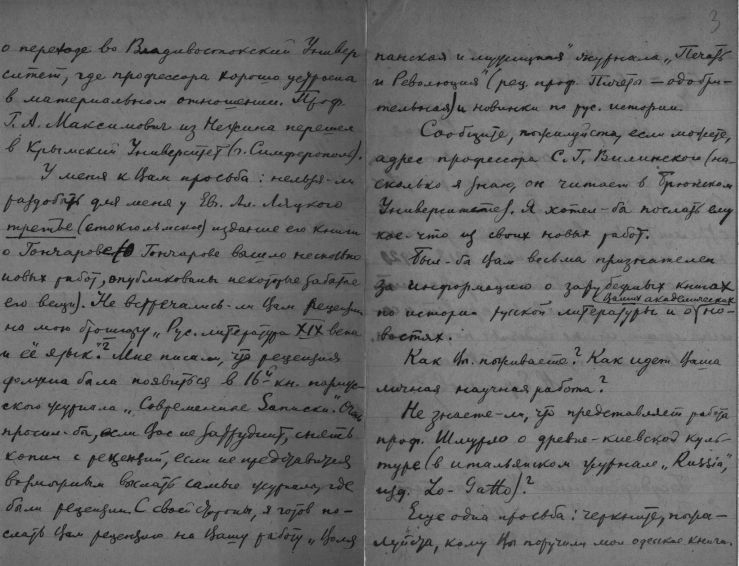 о переходе во Владивостокский Универ
ситет, где профессора хорошо устроены
в материальном отношении. Проф.
Г. А. Максимович из Нежина перешел
в Крымский Университет (г. Симферополь).
У меня к Вам просьба: нельзя-ли
раздобыть для меня у Ев. Ал. Ляцкого
третье (стокгольмское) издание его книги
о Гончарове (о Гончарове вышло несколько
новых работ, опубликованы некоторые забытые
его вещи). Не встречались-ли Вам рецензии
на мою брошюру „Рус. литература XIX века
и её язык"? Мне писали, что рецензия
должна была появиться в 16й кн. париж-
ского журнала „Современные Записки".
просил-бы, если Вас не затруднит, снять
копии с рецензий, если не представится
возможным выслать самые журналы, где
были рецензии. С своей стороны, я готов по-
слать Вам рецензию на Вашу работу „
3
панская и мужицкая" журнала „Печать
и Революция" (рец. проф. Пичета — одобри-
тельная) и новинки по рус. истории.
Сообщите, пожалуйста, если можете,
адрес профессора С. Г. Вилинского (на-
сколько я знаю, он читает в Брюнском
Университете). Я хотел-бы послать ему
кое-что из своих новых работ.
Был-бы Вам весьма признателен
за информацию о зарубежных книгах
по истории русской литературы и о Ваших академических но-
востях.
Как Вы поживаете? Как идет Ваша
личная научная работа?
Не знаете-ли, что представляет работа
проф. Шмурло о древне-киевской куль-
туре (в итальянском журнале „Russia",
изд. Lo-Gatto)?
Еще одна просьба: черкните, пожа-
луйста, кому Вы поручили мои одесские книги.